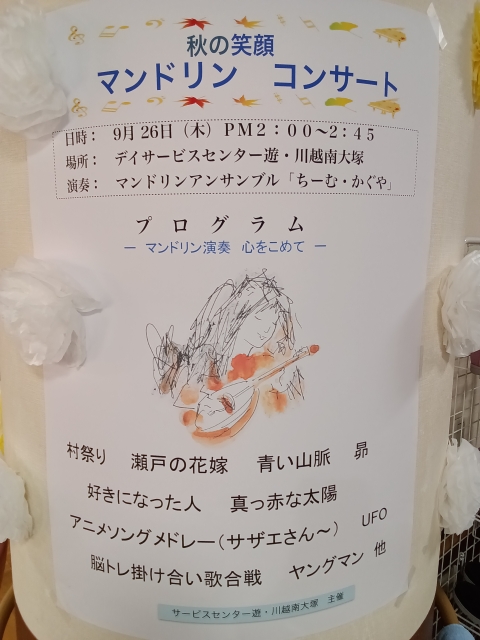 秋の笑顔
マンドリン コンサート
日時： 9月26日（木）PM2：00～2：45
場所： デイサービスセンター遊・川越南大塚
演奏： マンドリンアンサンブル「ちーむ・かぐや」
プログラム
― マンドリン演奏 心をこめて ―
村祭り 瀬戸の花嫁 青い山脈 昴
好きになった人 真っ赤な太陽
アニメソングメドレー（サザエさん～） UFO
脳トレ掛け合い歌合戦 ヤングマン 他
サービスセンター遊・川越南大塚 主催